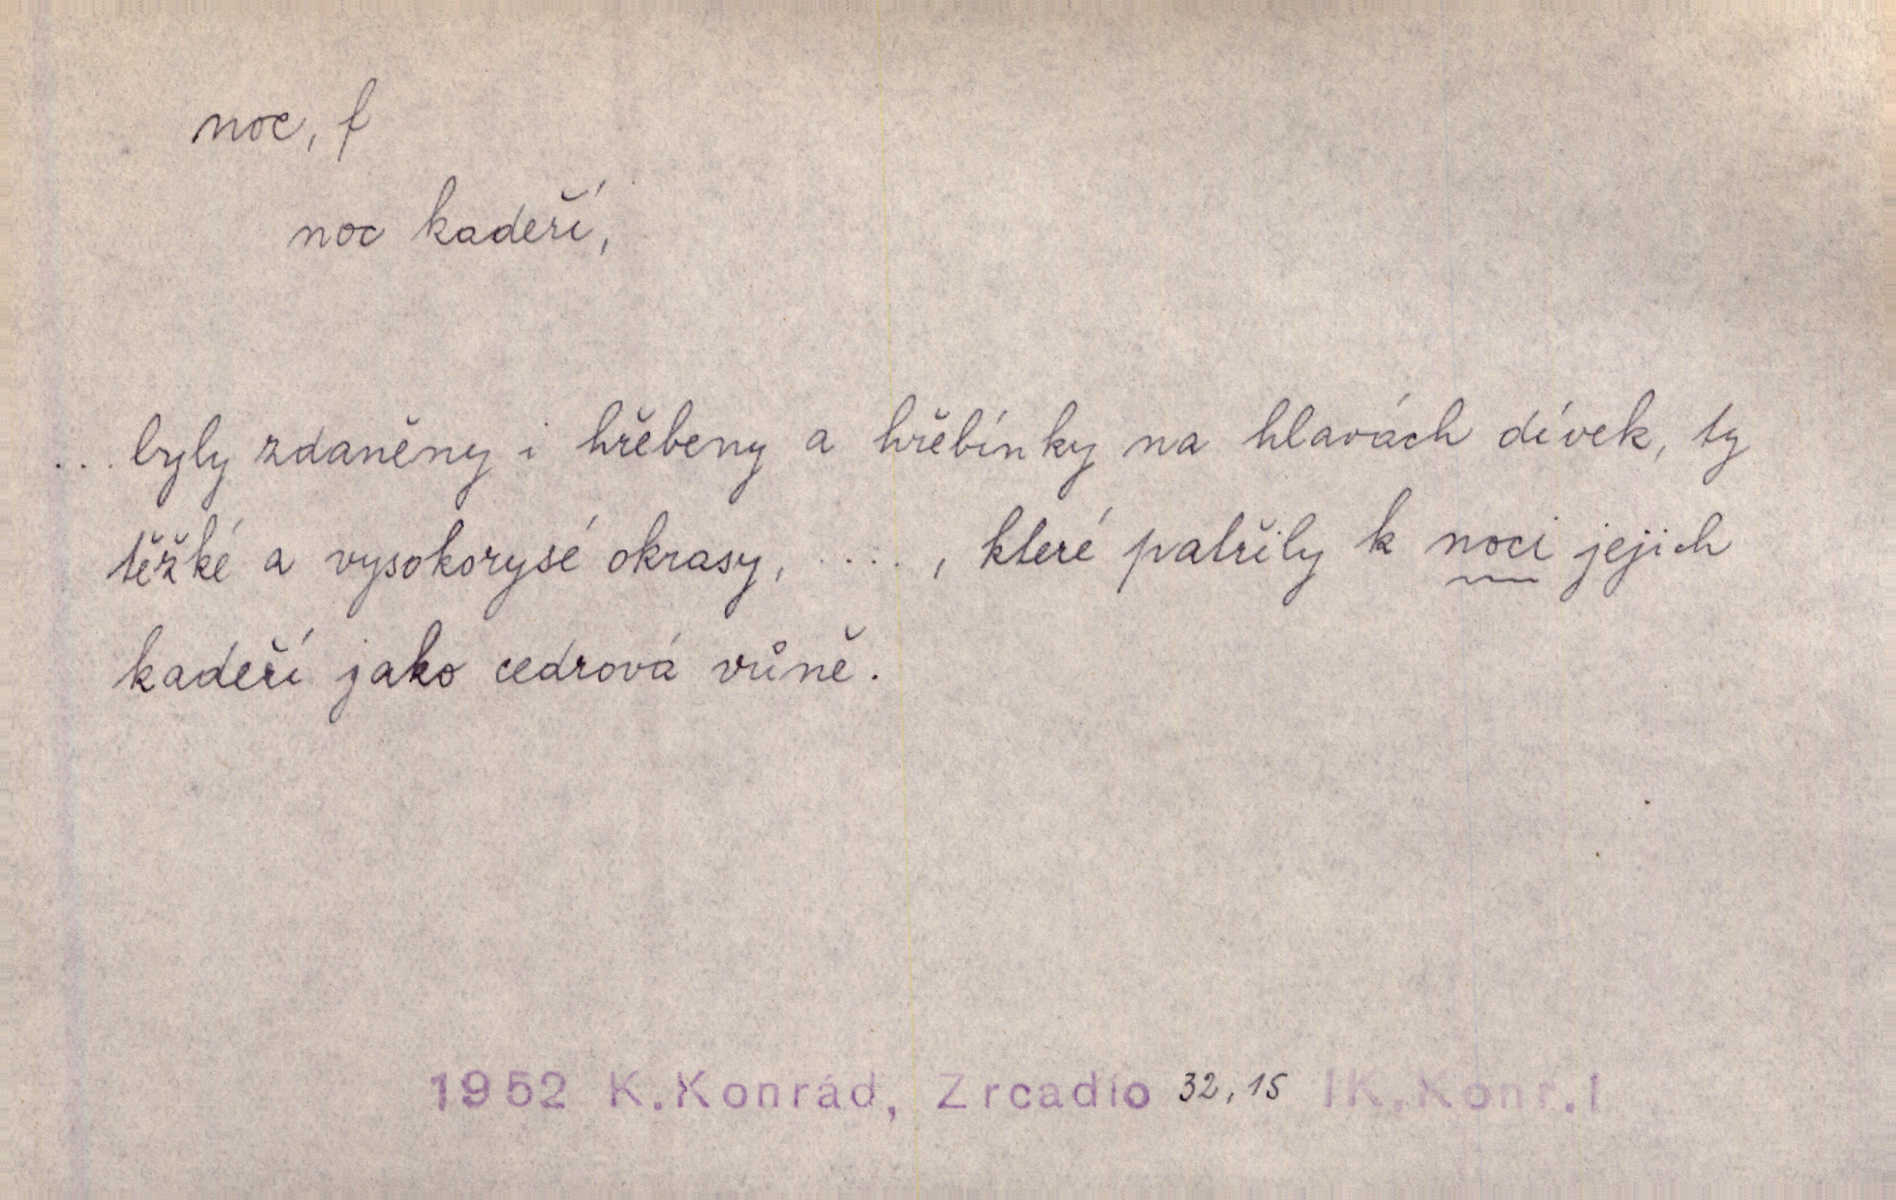 noc, f
noc kadeří,
... byly zdaněny i hřebeny a hřebínky na hlavách dívek, ty
těžké a vysokorysé okrasy, ...., které patřily k noci jejich
kadeří jako cedrová vůně.
1952 K.Konrád, Zrcadlo 32,15 IK.Konr.I